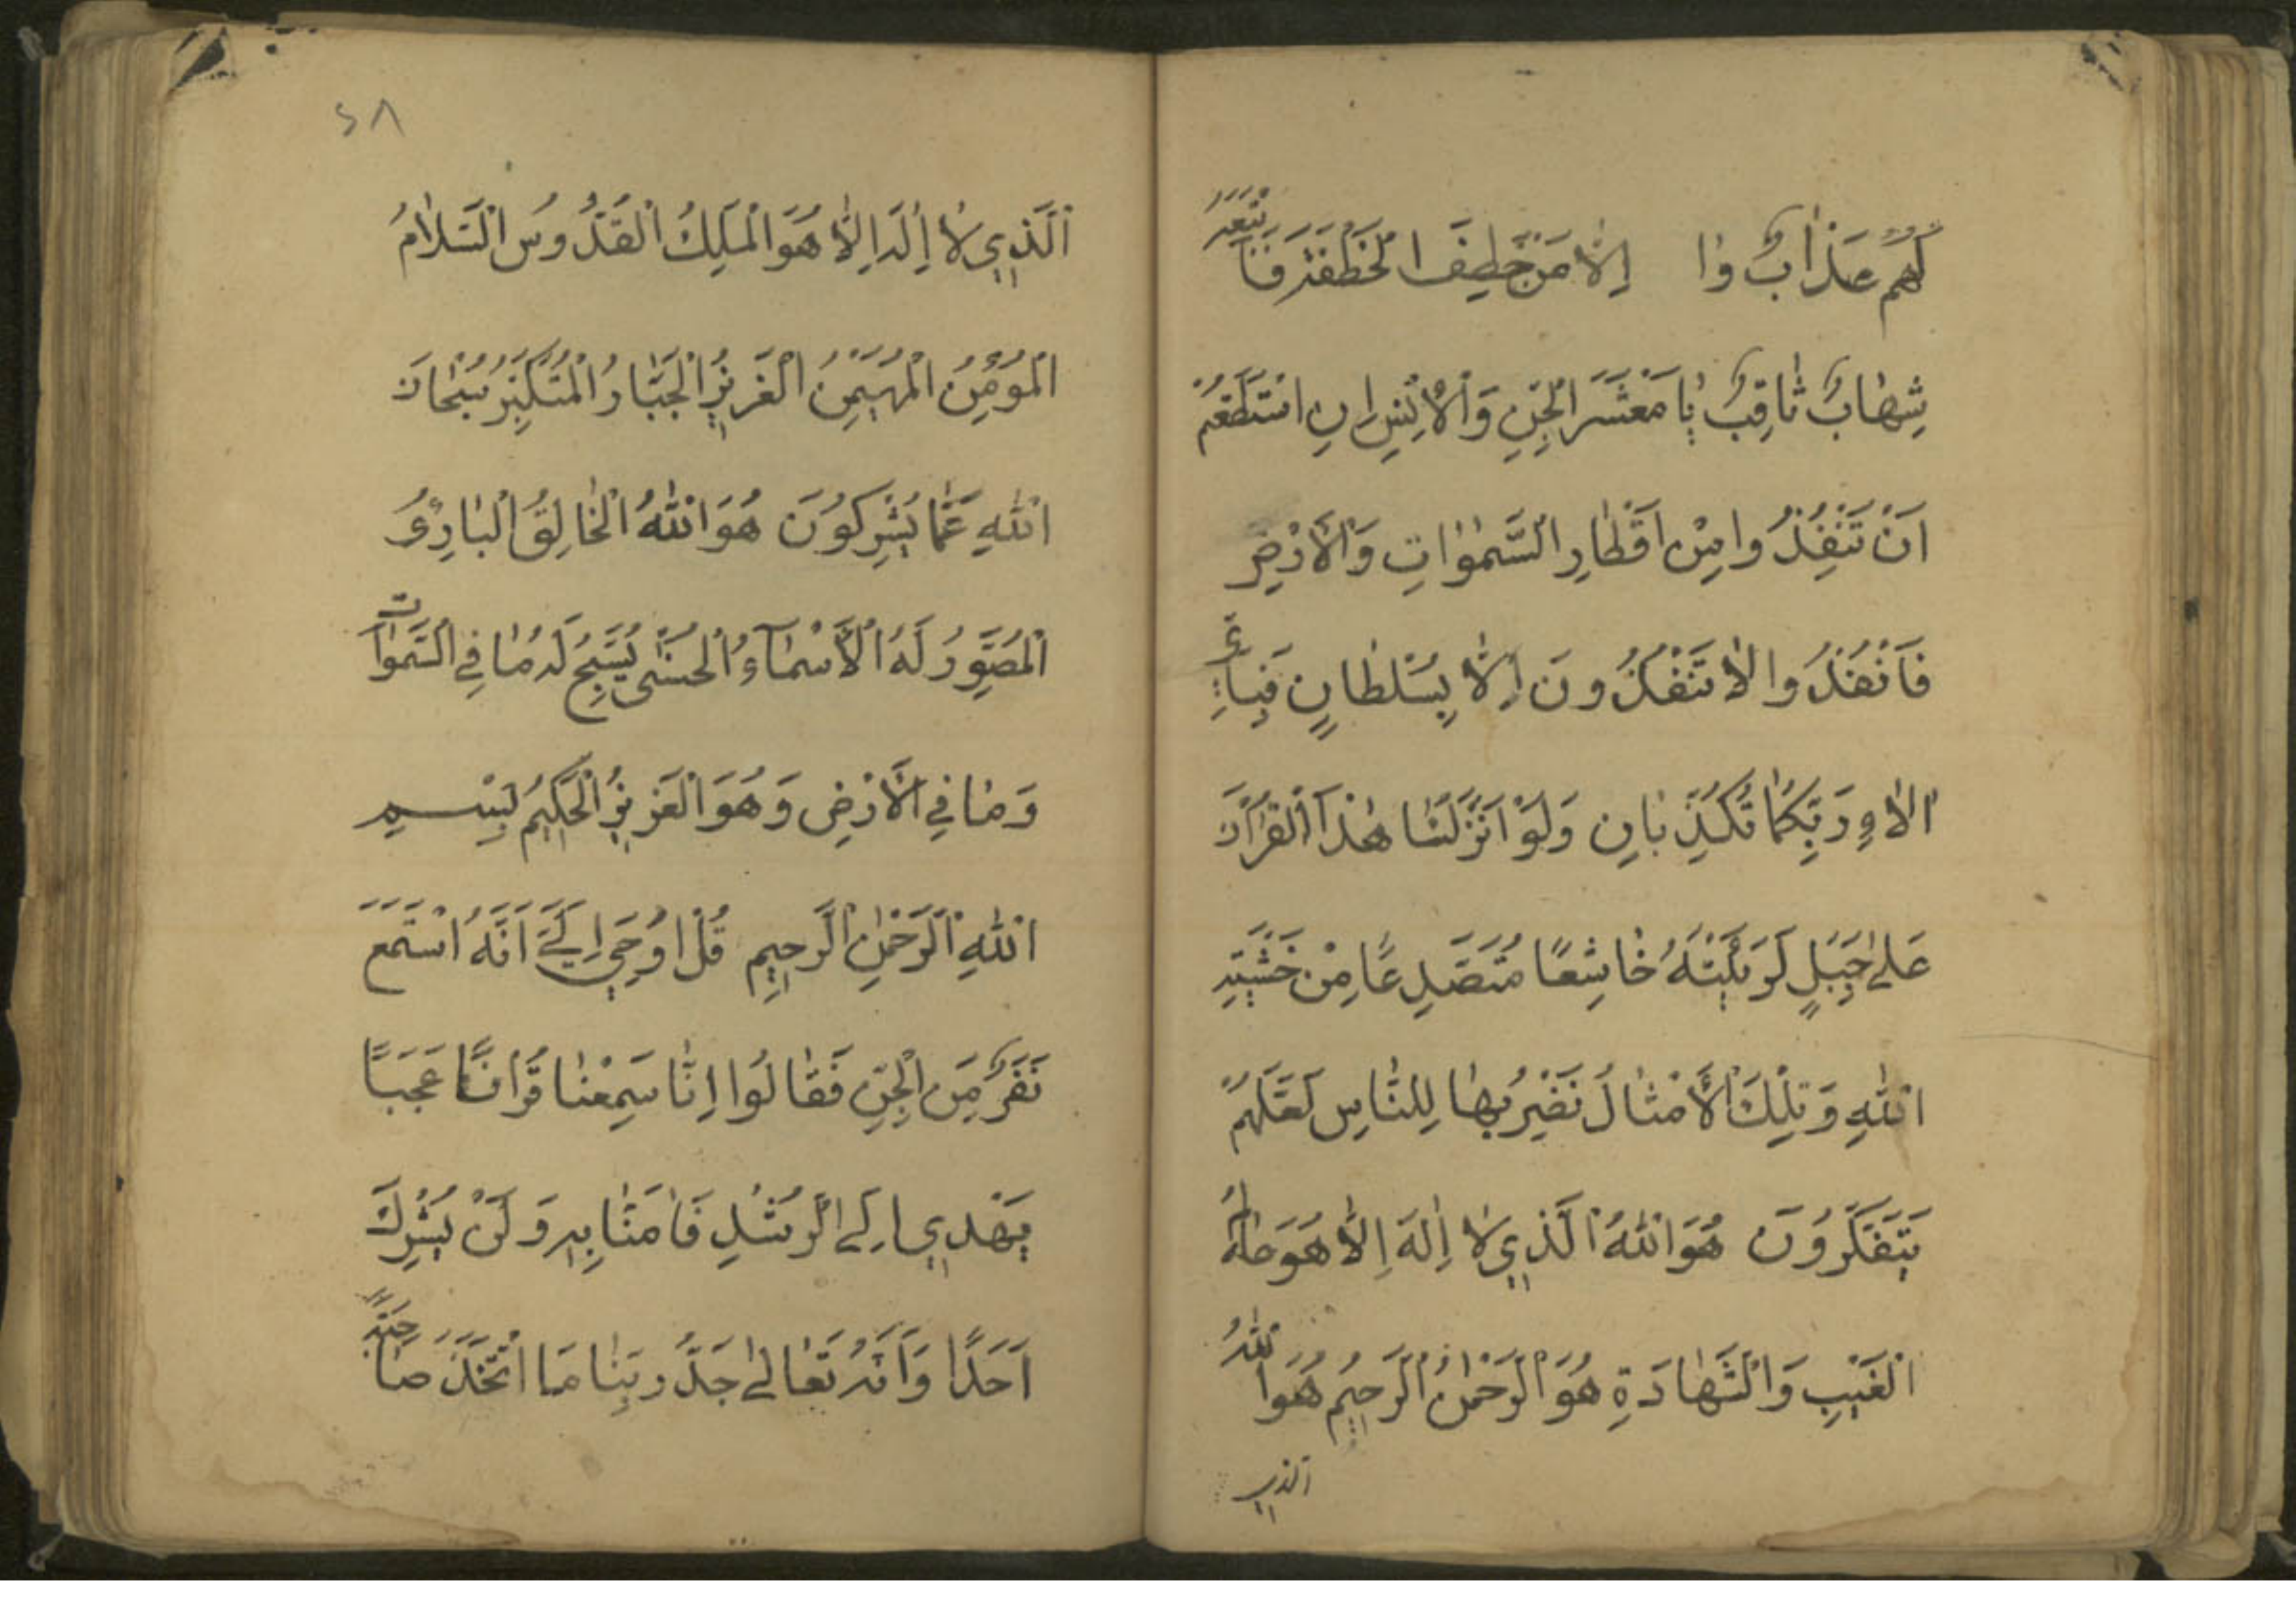 لَهُمْ عَذَابٌ وَا إِلَّا مَنْ خَطِفَ الْخَطْفَةَ فَأَتْبَعَهُ
شِهَابٌ ثَاقِبٌ يَا مَعْشَرَ الْجِنِّ وَالْأِنْسِ إِنِ اسْتَطَعْتُمْ
اَنْ تَنْفُذُوا مِنْ اَقْطَارِ السَّمٰوَاتِ وَالْاَرْضِ
فَانْفُذُوا لَا تَنْفُذُونَ اِلَّا بِسُلْطَانٍ فَبِاَيِّ
الَاءِ رَبِّكُمَا تُكَذِّبَانِ وَلَوْ اَنْزَلْنَا هٰذَا الْقُرْآنَ
عَلٰى جَبَلٍ لَرَئَيْتَهُ خَاشِعًا مُتَصَدِعًا مِنْ خَشْيَةِ
اللّٰهِ وَتِلْكَ الْاَمْثَالُ نَضْرِبُهَا لِلنَّاسِ لَعَلَّهُمْ
يَتَفَكَّرُونَ هُوَ اللّٰهُ الَّذِي لَا اِلٰهَ اِلَّا هُوَ عَالِمُ
الْغَيْبِ وَالشَّهَادَةِ هُوَ الرَّحْمٰنُ الرَّحِيمُ هُوَ اللّٰهُ
الذي
٢٨
اَلَّذِي لَا اِلٰهَ اِلَّا هُوَ الْمَلِكُ الْقُدُّوسُ السَّلَامُ
الْمُؤْمِنُ الْمُهَيْمِنُ الْعَزِيزُ الْجَبَّارُ الْمُتَكَبِّرُ سُبْحَانَ
اللّٰهِ عَمَّا يُشْرِكُونَ هُوَ اللّٰهُ الْخَالِقُ الْبَارِئُ
الْمُصَوِّرُ لَهُ الْاَسْمَآءُ الْحُسْنٰى يُسَبِّحُ لَهُ مَا فِي السَّمٰوَاتِ
وَمَا فِي الْاَرْضِ وَهُوَ الْعَزِيزُ الْحَكِيمُ بِسْمِ
اللّٰهِ الرَّحْمٰنِ الرَّحِيمِ قُلْ اُوحِيَ اِلَيَّ اَنَّهُ اسْتَمَعَ
نَفَرٌ مِنَ الْجِنِّ فَقَالُوا اِنَّا سَمِعْنَا قُرْاٰنًا عَجَبًا
يَهْدِي اِلَى الرُّشْدِ فَاٰمَنَّا بِهِ وَلَنْ نُشْرِكَ
اَحَدًا وَاَنَّهُ تَعَالٰى جَدُّ رَبِّنَا مَا اتَّخَذَ صَاحِبَةً